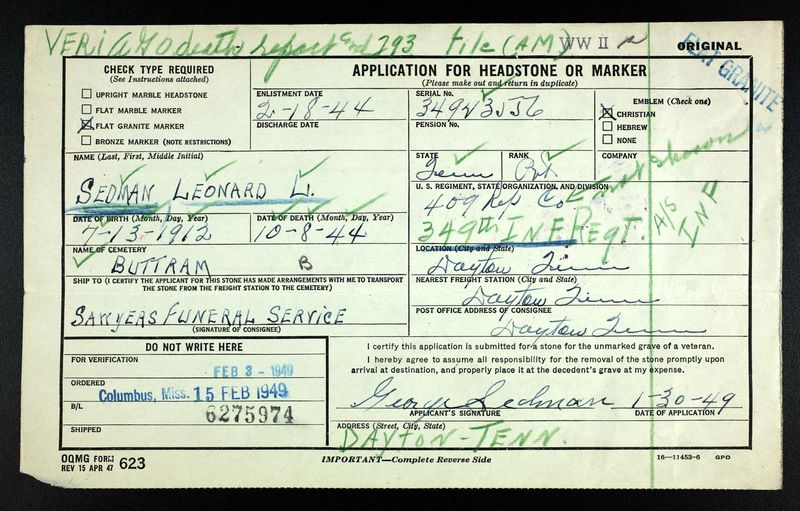 VERi AGO death report End 293 file (AM) WW II
ORIGINAL
FLAT GRANITE
CHECK TYPE REQUIRED
(See Instructions attached)
UPRIGHT MARBLE HEADSTONE
FLAT MARBLE MARKER
FLAT GRANITE MARKER
BRONZE MARKER (NOTE RESTRICTIONS)
APPLICATION FOR HEADSTONE OR MARKER
(Please make out and return in duplicate)
ENLISTMENT DATE
2-18-44
DISCHARGE DATE
SERIAL No.
34923556
PENSION No.
EMBLEM (Check one)
CHRISTIAN
HEBREW
NONE
NAME (Last, First, Middle Initial)
SEDMAN LEONARD L.
STATE
Tenn
RANK
Pvt
COMPANY
DATE OF BIRTH (Month, Day, Year)
7-13-1912
DATE OF DEATH (Month, Day, Year)
10-8-44
U. S. REGIMENT, STATE ORGANIZATION, AND DIVISION
409 Rep Co
not shown
349th INF. Regt.
A/S
INF
NAME OF CEMETERY
BUTTRAM B
LOCATION (City and State)
Dayton Tenn
SHIP TO (I CERTIFY THE APPLICANT FOR THIS STONE HAS MADE ARRANGEMENTS WITH ME TO TRANSPORT
THE STONE FROM THE FREIGHT STATION TO THE CEMETERY)
SAWYERS FUNERAL SERVICE
(SIGNATURE OF CONSIGNEE)
NEAREST FREIGHT STATION (City and State)
Dayton Tenn
POST OFFICE ADDRESS OF CONSIGNEE
Dayton Tenn
DO NOT WRITE HERE
FOR VERIFICATION
FEB 3 - 1949
ORDERED
Columbus, Miss. 15 FEB 1949
B/L
6275974
SHIPPED
I certify this application is submitted for a stone for the unmarked grave of a veteran.
I hereby agree to assume all responsibility for the removal of the stone promptly upon
arrival at destination, and properly place it at the decedent's grave at my expense.
George Sedman 1-30-49
APPLICANT'S SIGNATURE DATE OF APPLICATION
ADDRESS (Street, City, State)
DAYTON-TENN.
OQMG FORM
REV 15 APR 47 623
IMPORTANT—Complete Reverse Side
16—11453-6 GPO